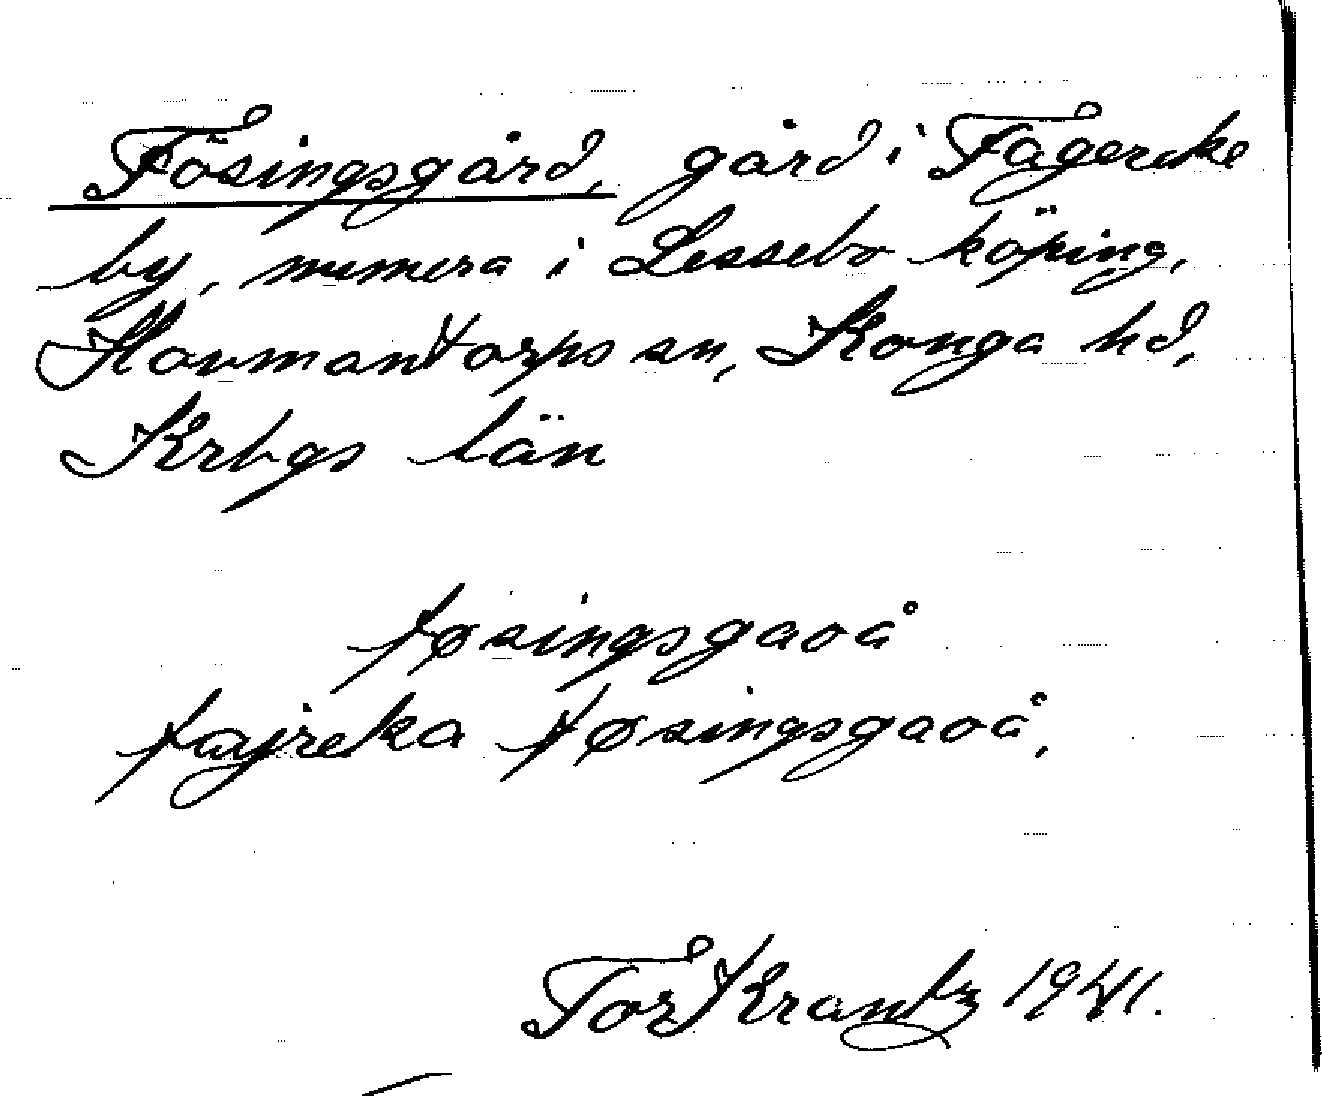 Fösingsgård, gård i Fagereke
by, numera i Lessebo köping,
Hovmantorps sn, Konga hd,
Krbgs län
føsingsgaoå
fajreka føsingsgaoå,
Tor Krantz 1941.